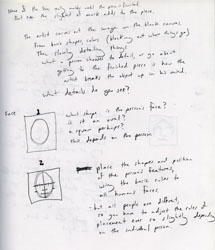 None of the lines only inside until the piece is finished.
But use the simplest of marks adds to the piece.
The artist carves out the image on the blank canvas.
From basic shapes, colors (blocking out where things go)
Then slowly detailing things.
what a person chooses to detail, or go about
getting to the finished piece is how the
artist breaks the object up in his mind.
What details do you see?
Face
1
what shape is the person's face?
is it an oval?
a square perhaps?
this depends on the person
2
place the shapes and position
of the person's features,
using the basic rules to
all human's faces.
- but all people are different,
so you have to adjust the rules of
placement ever so slightly depending
on the individual person.